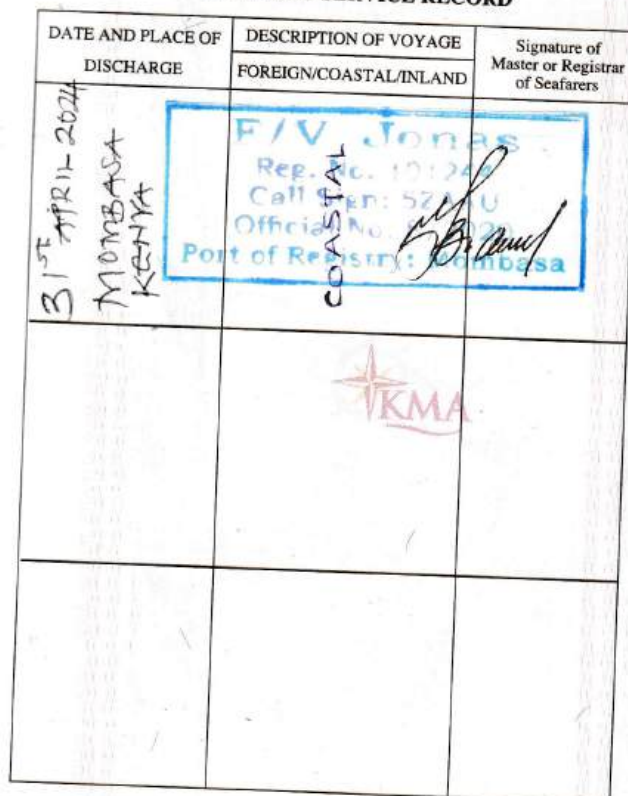 SERVICE RECORD
DATE AND PLACE OF DISCHARGE
DESCRIPTION OF VOYAGE
FOREIGN/COASTAL/INLAND
Signature of
Master or Registrar
of Seafarers
31ST APRIL-2024
MOMBASA
KENYA
COASTAL
F/V Jonas
Reg. No.
Call Sign:
Official No.
Port of Registry: Mombasa
KMA